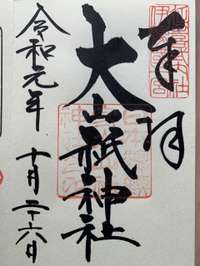 奉拝
大山祇神社
令和元年
十月二十六日